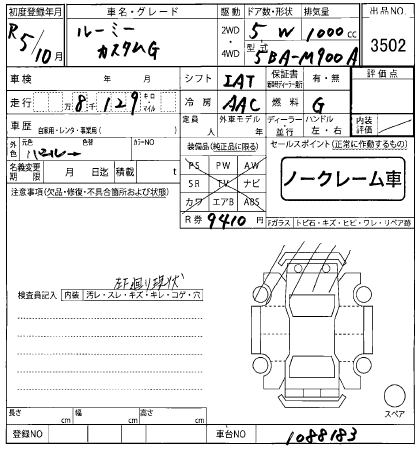 初度登録年月 車名・グレード 駆動 ドア数・形状 排気量 出品NO.
R5/10月 ルーミー カスタムG 2WD・4WD 5W 1000cc 3502
型式 5BA-M900A
車検 年 月 シフト IAT 保証書 新車時ディーラー発行 有・無 評価点
走行 万 8千129 キロ・マイル 冷房 AAC 燃料 G
車歴 自家用・レンタ・事業用( ) 定員 人 外車モデル 年 ディーラー・並行 ハンドル 左・右 内装評価
外色 元色 色替 カラーNO 装備品(純正品に限る) セールスポイント(正常に作動するもの)
パール
PS PW AW
名義変更期限 月 日迄 積載 t SR TV ナビ
ノークレーム車
注意事項(欠品・修復・不具合箇所および状態) カワ エアB ABS
R券 9410円
Fガラス トビ石・キズ・ヒビ・ワレ・リペア跡
左前廻り現状
検査員記入 内装 汚レ・スレ・キズ・キレ・コゲ・穴
スペア
長さ cm 幅 cm 高さ cm
登録NO 車台NO 1088183